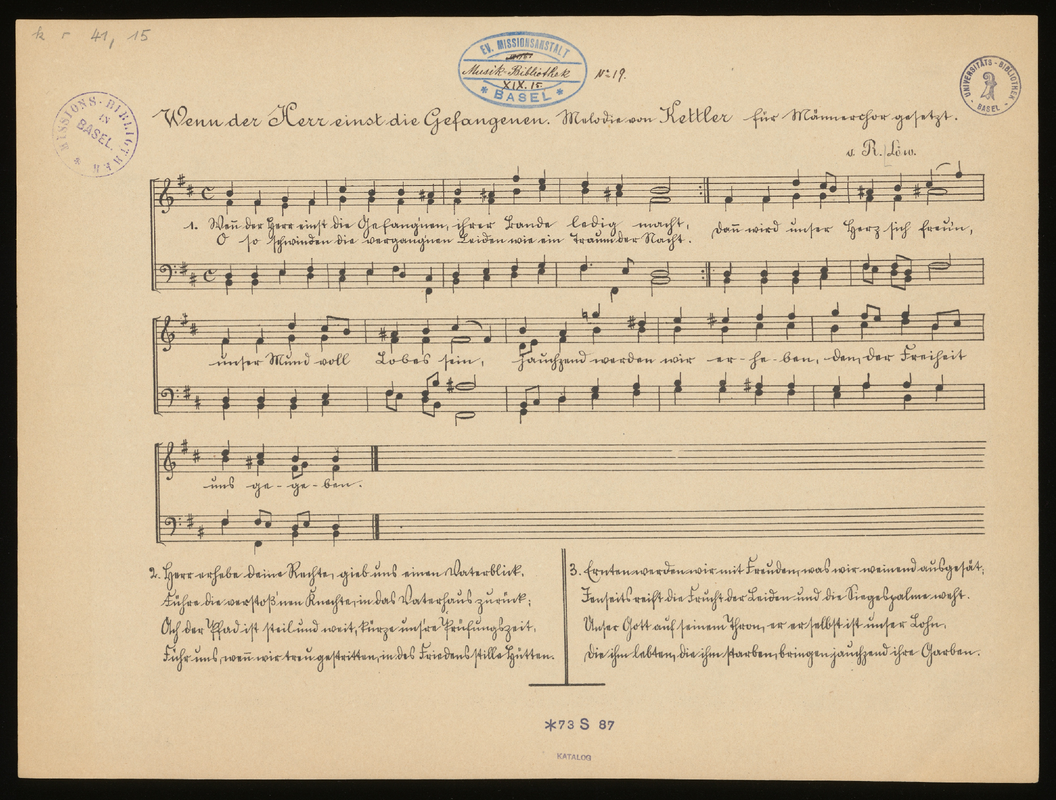 k r 41, 15
EV. MISSIONSANSTALT
Musik-Bibliothek
XIX. 15
* BASEL *
No 19.
UNIVERSITÄTS-BIBLIOTHEK
BASEL
MISSIONS-BIBLIOTHEK
IN
BASEL.
Wenn der Herr einst die Gefangenen. Melodie von Kettler für Männerchor gesetzt.
v. R. Löw.
1. Wen̄ der Herr einst die Gefangnen, ihrer Bande ledig macht, Dan̄ wird unser Herz sich freun,
O so schwinden die vergangnen Leiden wie ein Traum der Nacht.
unser Mund voll Lobes sein, Jauchzend werden wir er-he-ben, den, der Freiheit
uns ge-ge-ben.
2. Herr erhebe deine Rechte, gieb uns einen Vaterblick.
Führe die verstoß'nen Knechte, in das Vaterhaus zurück;
Ach der Pfad ist steil und weit, kürze unsre Prüfungszeit,
Führ uns, wen̄ wir treu gestritten, in des Friedens stille Hütten.
3. Ernten werden wir mit Freuden, was wir weinend ausgesät;
Jenseits reift die Frucht der Leiden und die Siegespalme weht.
Unser Gott auf seinem Thron, er er selbst ist unser Lohn.
Die ihm lebten, die ihm starben, bringen jauchzend ihre Garben.
*73 S 87
KATALOG